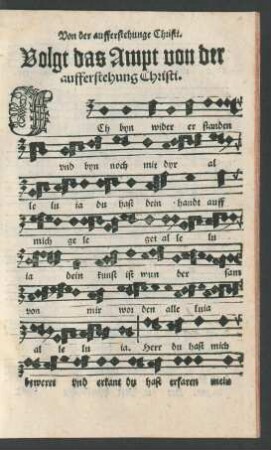 Von der aufferstehunge Christi.
Volgt das Ampt von der
aufferstehung Christi.
Ch byn wider er standen
vnd byn noch mit dyr al
le lu ia du hast dein handt auff
mich ge le get al le lu
ia dein kunst ist wun der sam
von mir wor den alle luia
al le lu ia. Herr du hast mich
beweret vnd erkant du hast erfaren mein